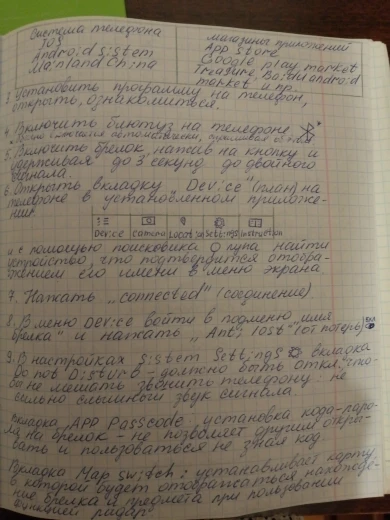 Система телефона
IOS
Android sistem
Mainland China
магазины приложений
App Store
Google play market
Treasure, Baidu android
market и пр.
3. Установить программу на телефон,
открыть, ознакомиться.
4. Включить блютуз на телефоне
5. Включить брелок нажав на кнопку и
удерживая до 3 секунд до двойного
сигнала.
6. Открыть вкладку "Device" (план) на
телефоне в установленном приложе-
нии
Device Camera Location Settings Instruction
и с помощью поисковика лупа найти
устройство, что подтвердится отобра-
жением его имени в меню экрана.
7. Нажать "connected" (соединение).
8. В меню Device войти в подменю "имя
брелка" и нажать "Anti lost" (от потерь)
9. В настройках Sistem Settings вкладка
Do not Disturb - должно быть откл. что-
бы не мешать звонить телефону: не
сильно слышимый звук сигнала
Вкладка APP Passcode, установка кода-паро-
ля на брелок - не позволяет другим откры-
вать и пользоваться не зная код.
Вкладка Map switch: устанавливает карту,
в которой будет отображаться нахожде-
ние брелка и предмета при пользовании
функцией радар